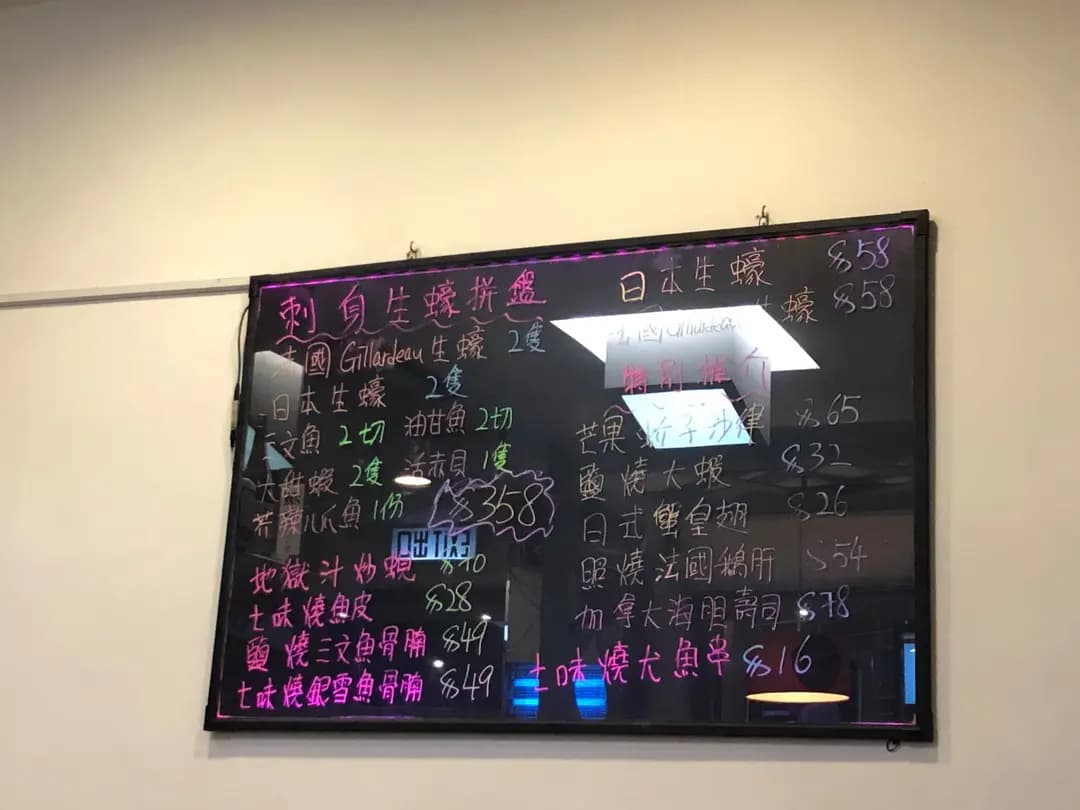 刺身生蠔拼盤
法國Gillardeau生蠔 2隻
日本生蠔 2隻
三文魚 2切 油甘魚 2切
大甜蝦 2隻 活赤貝 1隻
芥辣八爪魚 1份
$358
地獄汁炒蜆
七味燒魚皮 $28
鹽燒三文魚骨腩 $49
七味燒銀雪魚骨腩 $49
日本生蠔 $58
法國Gillardeau生蠔 $58
特別推介
芒果帶子沙律 $65
鹽燒大蝦 $32
日式蟹皇翅 $26
照燒法國鵝肝 $54
加拿大海胆壽司 $78
七味燒犬魚串 $16
出口